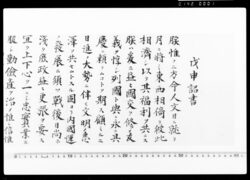 戊申詔書
朕惟フニ方今人文日ニ就リ
月ニ將ミ東西相倚リ彼此
相濟シ以テ其福利ヲ共ニス
朕ハ爰ニ益國交ヲ修メ友
義ヲ惇シ列國ト與ニ永ク其
慶ニ頼ラムコトヲ期ス顧ミルニ
日進ノ大勢ニ伴ヒ文明ノ惠
澤ヲ共ニセムトスル固ヨリ内國運
ノ發展ニ須ツ戰後日尚
淺ク庶政益更張ヲ要ス
宜ク上下心ヲ一ニシ忠實業ニ
服シ勤儉産ヲ治メ惟信惟